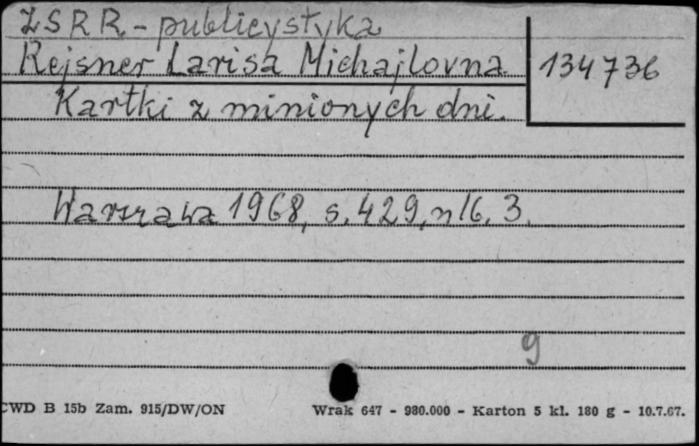 ZSRR - publicystyka
Rejsner Larisa Michajlovna 134736
Kartki z minionych dni.
Warszawa 1968, s. 429, nlb. 3.
9
CWD B 15b Zam. 915/DW/ON Wrak 647 - 980.000 - Karton 5 kl. 180 g - 10.7.67.